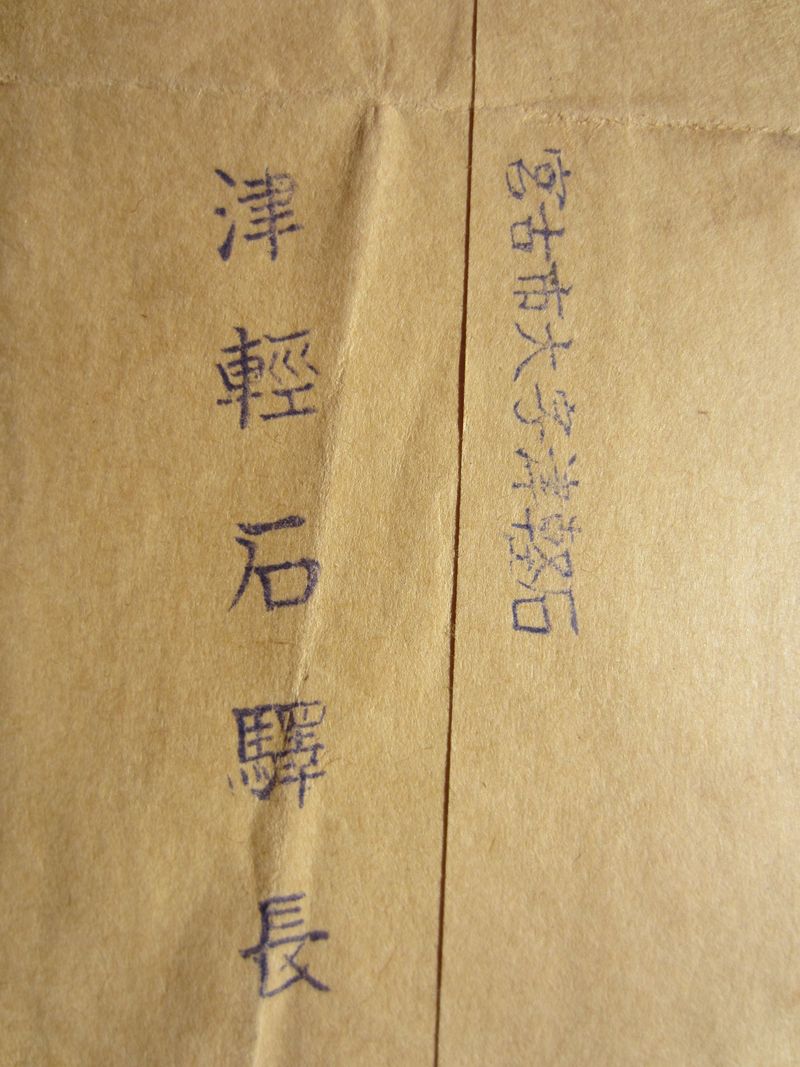 宮古市大字津軽石
津輕石驛長